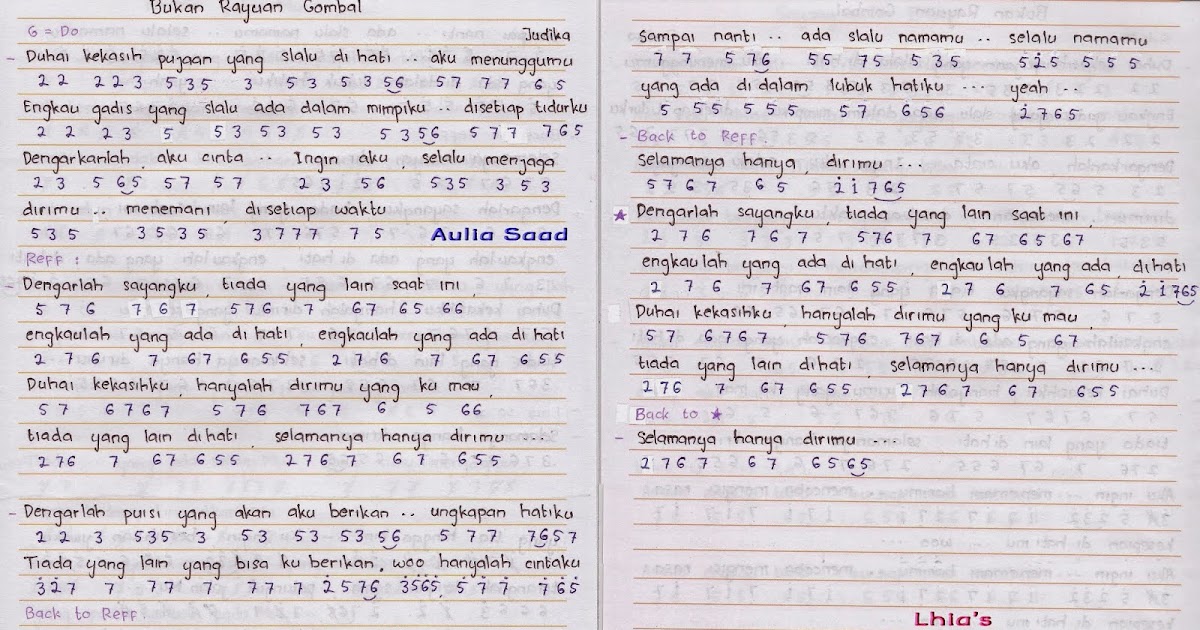 Bukan Rayuan Gombal
G = Do
Judika
- Duhai kekasih pujaan yang slalu di hati .. aku menunggumu
2 2 2 2 3 5 3 5 3 5 3 5 3 5 6 5 7 7 7 6 5
Engkau gadis yang slalu ada dalam mimpiku .. disetiap tidurku
2 2 2 3 5 5 3 5 3 5 3 5 3 5 6 5 7 7 7 6 5
Dengarkanlah aku cinta .. Ingin aku selalu menjaga
2 3 5 6 5 5 7 5 7 2 3 5 6 5 3 5 3 5 3
dirimu .. menemani disetiap waktu
5 3 5 3 5 3 5 3 7 7 7 7 5
Aulia Saad
Reff :
- Dengarlah sayangku, tiada yang lain saat ini,
5 7 6 7 6 7 5 7 6 7 6 7 6 5 6 6
engkaulah yang ada di hati engkaulah yang ada di hati
2 7 6 7 6 7 6 5 5 2 7 6 7 6 7 6 5 5
Duhai kekasihku, hanyalah dirimu yang ku mau,
5 7 6 7 6 7 5 7 6 7 6 7 6 5 6 6
tiada yang lain dihati selamanya hanya dirimu ....
2 7 6 7 6 7 6 5 5 2 7 6 7 6 7 6 5 5
- Dengarlah puisi yang akan aku berikan .. ungkapan hatiku
2 2 3 5 3 5 3 5 3 5 3 5 3 5 6 5 7 7 7 6 5 7
Tiada yang lain yang bisa ku berikan, woo hanyalah cintaku
3̇ 2̇ 7 7 7 7 7 7 7 7 2̇ 5 7 6 3̇ 5 6 5 5 7 7 7 6 5
Back to Reff
Sampai nanti .. ada slalu namamu .. selalu namamu
7 7 5 7 6 5 5 7 5 5 3 5 5 2̇ 5 5 5 5
yang ada didalam lubuk hatiku ... yeah ...
5 5 5 5 5 5 5 7 6 5 6 1̇ 7 6 5
- Back to Reff.
Selamanya hanya, dirimu ...
5 7 6 7 6 5 2̇ 1̇ 7 6 5
★ Dengarlah sayangku, tiada yang lain saat ini,
2 7 6 7 6 7 5 7 6 7 6 7 6 5 6 7
engkaulah yang ada di hati, engkaulah yang ada, dihati
2 7 6 7 6 7 6 5 5 2 7 6 7 6 5 2̇ 1̇ 7 6 5
Duhai kekasihku, hanyalah dirimu yang ku mau,
5 7 6 7 6 7 5 7 6 7 6 7 6 5 6 7
tiada yang lain dihati selamanya hanya dirimu ...
2 7 6 7 6 7 6 5 5 2 7 6 7 6 7 6 5 5
Back to ★
- Selamanya hanya dirimu ....
2 7 6 7 6 7 6 5 6 5
Lhia's